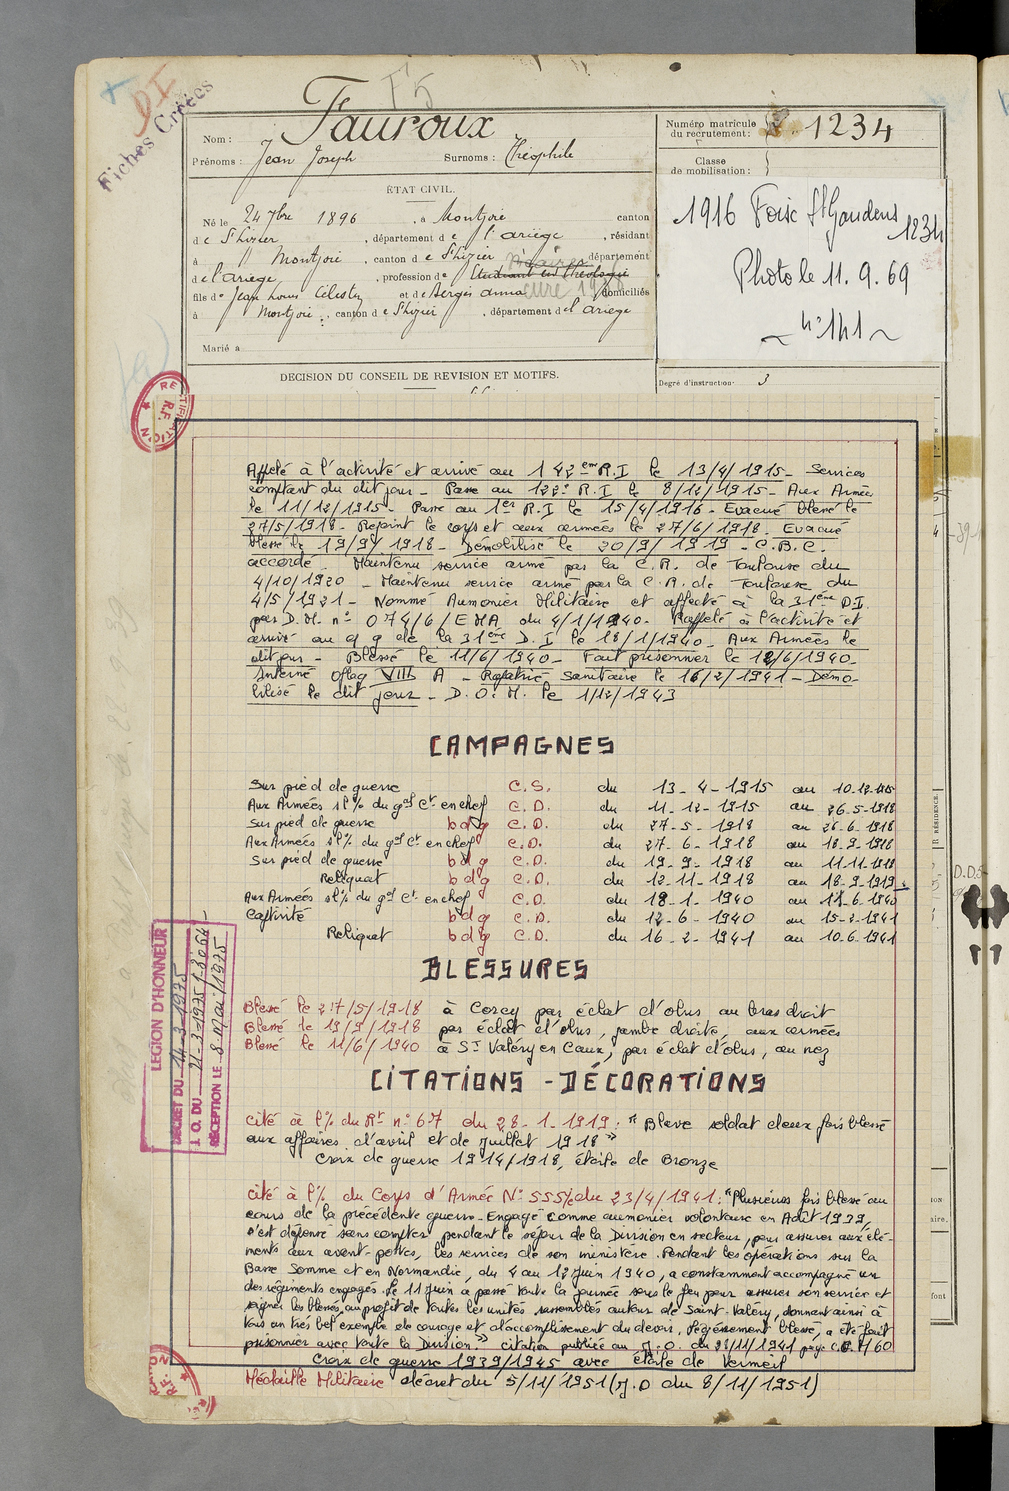 F5
DI
Fiches Créées
Nom : Fauroux
Prénoms : Jean Joseph Surnoms : Théophile
Numéro matricule du recrutement : 1234
Classe de mobilisation :
ÉTAT CIVIL.
Né le 24 7bre 1896, à Montjoie canton
de St Lizier, département de l'ariège, résidant
à Montjoie, canton de St Lizier département
de l'ariège, profession de Etudiant en théologie
curé
fils de Jean Louis Célestin et de Sergès anna domiciliés
à Montjoie, canton de St Lizier, département de l'ariège
Marié à
1916 Foix St Gaudens 1234
Photo le 11.9.69
n° 141
DECISION DU CONSEIL DE REVISION ET MOTIFS.
Degré d'instruction : 3
RECTIFICATION R.F.
Affecté à l'activité et arrivé au 142eme R.I le 13/4/1915 - Services
comptant du dit jour - Passé au 122e R.I le 8/12/1915 - Aux Armées
le 11/12/1915 - Passé au 1er R.I le 15/4/1916 - Evacué blessé le
27/5/1918 - Rejoint le corps et aux armées le 27/6/1918. Evacué
blessé le 19/9/1918 - Démobilisé le 20/9/1919 - C.B.C.
accordé. Maintenu service armé par la C.R. de Toulouse du
4/10/1920 - Maintenu service armé par la C.R. de Toulouse du
4/5/1921 - Nommé Aumonier Militaire et affecté à la 31ème DI.
par D.M. n° 074/6/EMA du 4/1/1940 - Rappelé à l'activité et
arrivé au q g de la 31ème D.I le 18/1/1940 - Aux Armées le
dit jour - Blessé le 11/6/1940 - Fait prisonnier le 12/6/1940 -
Interné Oflag VIII A - Rapatrié Sanitaire le 16/2/1941 - Démo-
bilisé le dit jour - D.O.M. le 1/12/1943
CAMPAGNES
Sur pied de guerre C.S. du 13-4-1915 au 10-12-1915
Aux Armées s/% du gal Ct en chef C.D. du 11-12-1915 au 26-5-1918
Sur pied de guerre bdg C.D. du 27-5-1918 au 26-6-1918
Aux Armées s/% du gal Ct en chef C.D. du 27-6-1918 au 18-9-1918
Sur pied de guerre bdg C.D. du 19-9-1918 au 11-11-1918
Reliquat bdg C.D. du 12-11-1918 au 18-9-1919
Aux Armées s/% du gal Ct en chef C.D. du 18-1-1940 au 11-6-1940
Captivité bdg C.D. du 12-6-1940 au 15-2-1941
Reliquat bdg C.D. du 16-2-1941 au 10-6-1941
BLESSURES
Blessé le 27/5/1918 à Corcy par éclat d'obus au bras droit
Blessé le 19/9/1918 par éclat d'obus, jambe droite, aux armées
Blessé le 11/6/1940 à St Valéry en Caux, par éclat d'obus, au nez
LEGION D'HONNEUR
DÉCRET DU 14-3-1975
J. O. DU 21-3-1975
RÉCEPTION LE 8 mai 1975
CITATIONS - DÉCORATIONS
Cité à l'% du Rt n° 67 du 28-1-1919 : "Brave soldat deux fois blessé
aux affaires d'avril et de juillet 1918"
Croix de guerre 1914/1918, étoile de Bronze
Cité à l'% du Corps d'Armée N° 555/c du 23/4/1941 : "Plusieurs fois blessé au
cours de la précédente guerre - Engagé comme aumonier volontaire en Août 1939,
s'est dépensé sans compter pendant le séjour de la Division en secteur, pour assurer aux élé-
ments aux avant-postes, les services de son ministère. Pendant les opérations sur la
Basse Somme et en Normandie, du 4 au 12 Juin 1940, a constamment accompagné un
des régiments engagés. Le 11 Juin a passé toute la journée sous le feu pour assurer son service et
soigner les blessés, au profit de toutes les unités rassemblées autour de Saint-Valéry, donnant ainsi à
tous un très bel exemple de courage et d'accomplissement du devoir. Légèrement blessé, a été fait
prisonnier avec toute la Division." Citation publiée au J.O. du 28/11/1941 page
Croix de guerre 1939/1945 avec étoile de Vermeil
Médaille Militaire décret du 5/11/1951 (J.O du 8/11/1951)